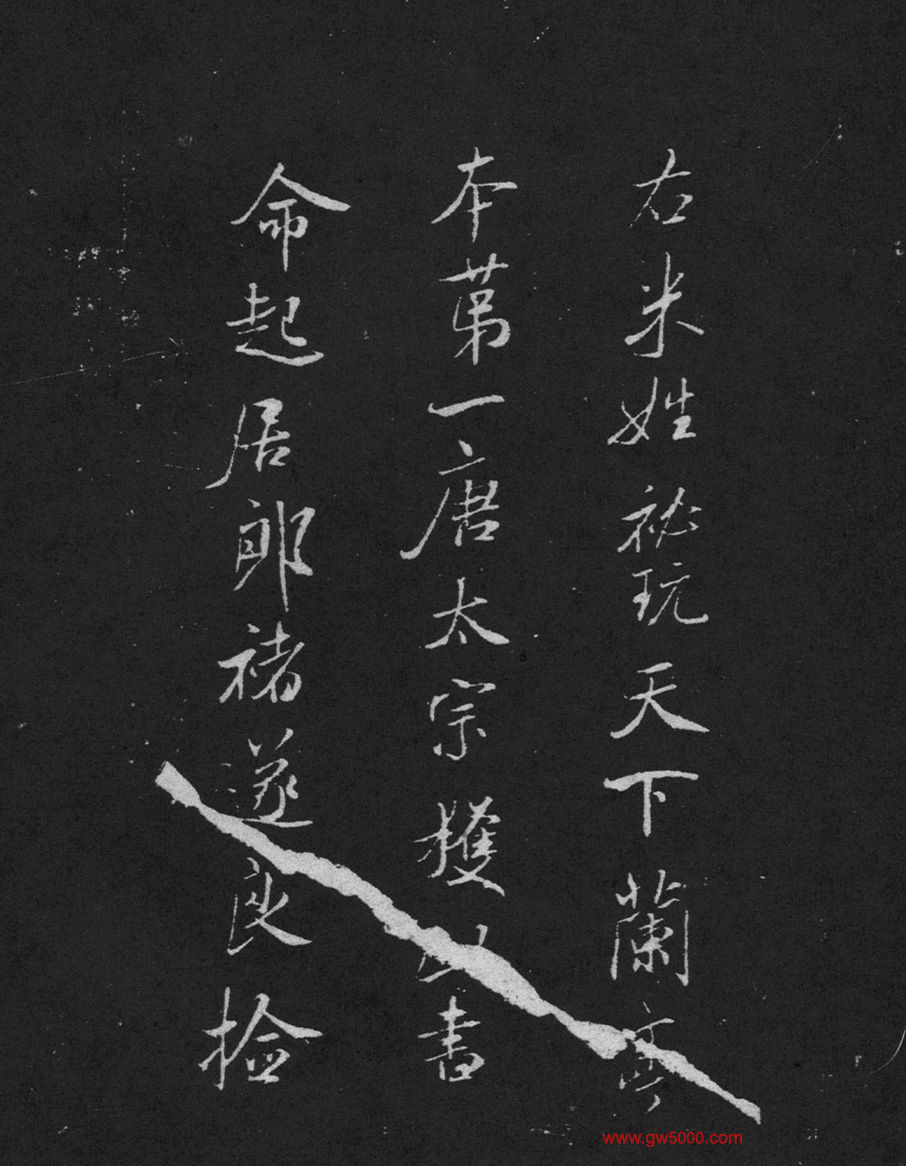 右米姓祕玩天下蘭亭
本第一唐太宗獲此書
命起居郎褚遂良撿
www.gw5000.com